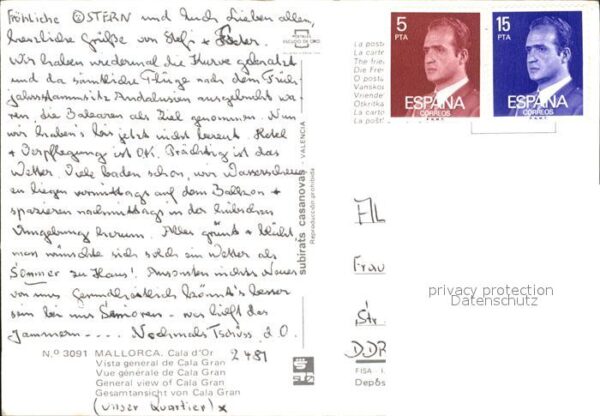 Fröhliche OSTERN und Euch Lieben allen,
herzliche Grüße von Stefi + Peter.
Wir haben wiedermal die Kurve gekratzt
und da sämtliche Flüge nach dem Früh-
jahrsstammsitz Andalusien ausgebucht wa-
ren, die Balearen als Ziel genommen. Nun
wir haben's bis jetzt nicht bereut. Hotel
+ Verpflegung ist OK. Prächtig ist das
Wetter. Viele baden schon, wir Wasserscheuen
liegen vormittags auf dem Balkon +
spazieren nachmittags in der hübschen
Umgebung herum. Alles grünt + blüht,
man wünschte sich solch ein Wetter als
Sommer zu Haus! Ansonsten nichts Neues
von uns. Gesundheitlich könnt's besser
sein bei uns Senioren - was hilft das
Jammern - - - . Nochmals Tschüss, d. O.
N.º 3091 MALLORCA. Cala d'Or
2 4 81
Vista general de Cala Gran
Vue générale de Cala Gran
General view of Cala Gran
Gesamtansicht von Cala Gran
(unser Quartier) x
subirats casanovas - VALENCIA
Reproducción prohibida
POSTALES
ESCUDO DE ORO
La posta
La carte
The frie
Die Freu
O posta
Vansko
Vriende
Otkritka
La carto
La pošti
5
PTA
ESPAÑA
CORREOS
15
PTA
ESPAÑA
CORREOS
Frau
privacy protection
Datenschutz
Str
DDR
FISA - I.
Depós